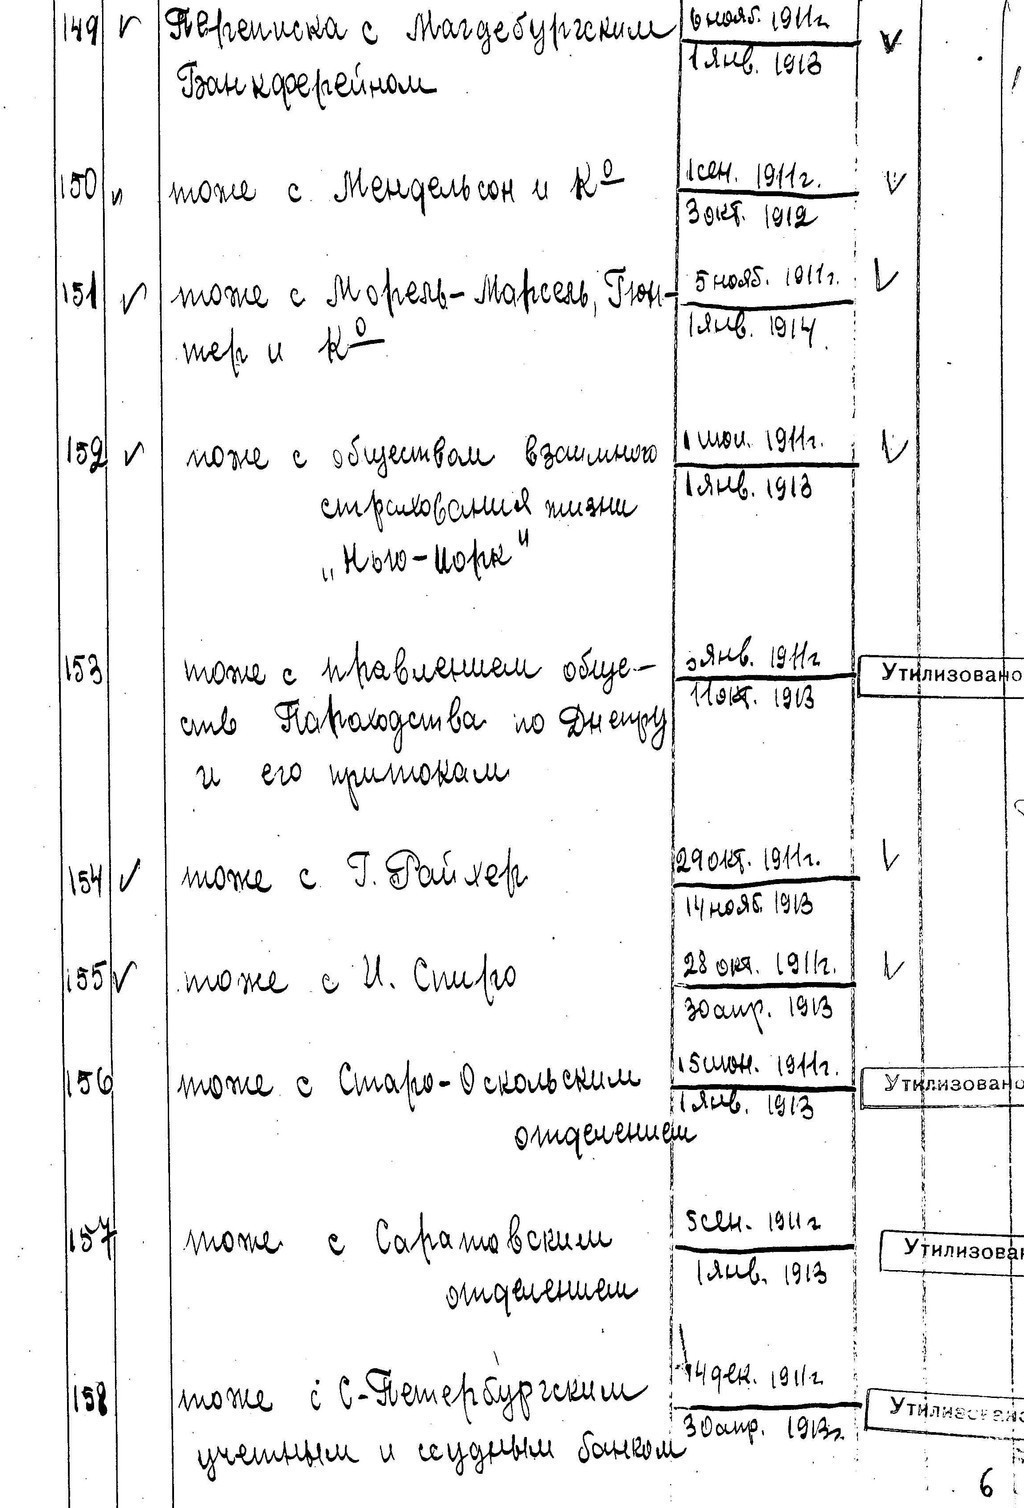 149 Переписка с Магдебургским 6 нояб. 1911г.
Банкферейном 1 янв. 1913
150 тоже с Мендельсон и Кº 1 сен. 1911г.
3 окт. 1912
151 тоже с Морель-Марсель, Гюн- 5 нояб. 1911г.
тер и Кº 1 янв. 1914
152 тоже с обществом взаимного 1911г.
страхования жизни 1 янв. 1913
„Нью-Иорк"
153 тоже с правлением обще- янв. 1911г Утилизовано
ств Пароходства по Днепру 11 окт. 1913
и его притокам
154 тоже с Г. Райхер 29 окт. 1911г.
14 нояб. 1913
155 тоже с И. Спиро 28 окт. 1911г.
30 апр. 1913
156 тоже с Старо-Оскольским 15 июн. 1911г. Утилизовано
отделением 1 янв. 1913
157 тоже с Саратовским 5 сен. 1911г Утилизован
отделением 1 янв. 1913
158 тоже с С-Петербургским 14 дек. 1911г Утилизовано
учетным и ссудным банком 30 апр. 1913г.
6